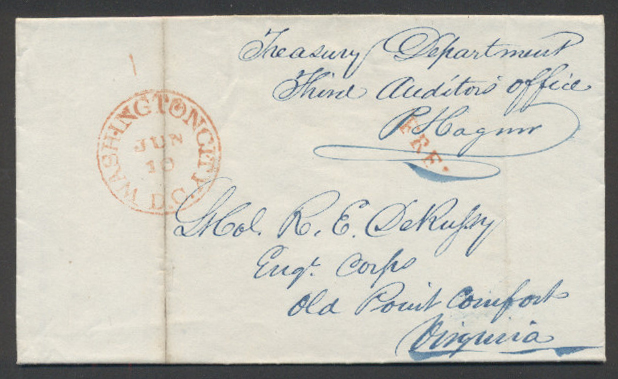 Treasury Department
Third Auditors office
P Hagner
FREE
WASHINGTON CITY
JUN
19
D.C.
Col. R. E. DeRussy
Engr. Corps
Old Point Comfort
Virginia